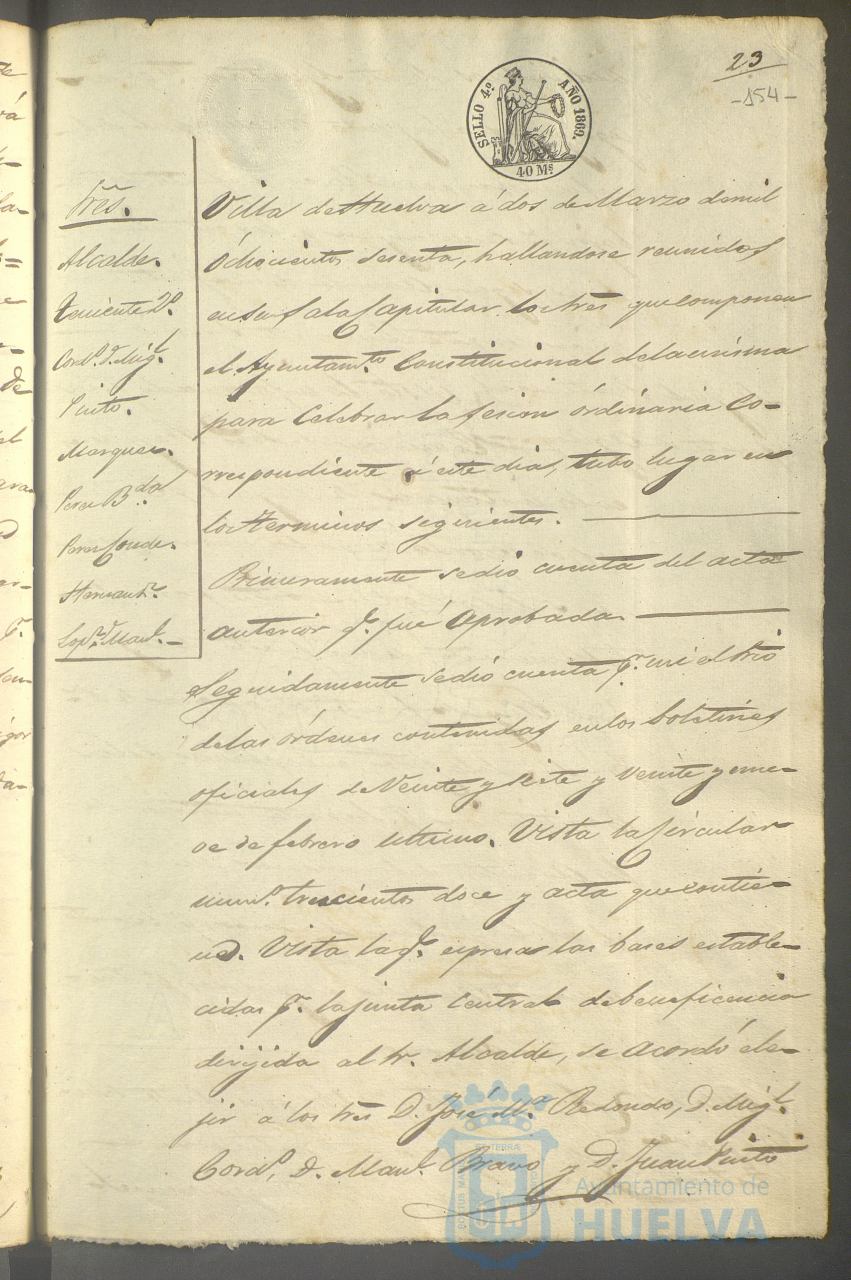 23
-154-
SELLO 4º AÑO 1860.
40 Ms
Sres.
Alcalde.
Teniente 2º.
Cordº. D. Migl.
Pinto.
Marquez.
Perez Bdo
Perez Conde.
Hernandz.
Lopz. D. Manl.
Villa de Huelva á dos de Marzo de mil
ochocientos sesenta, hallandose reunidos
en su Sala Capitular los Sres que componen
el Ayuntamto. Constitucional de la misma
para celebrar la sesion órdinaria co-
rrespondiente á este dia, tubo lugar en
los terminos siguientes.
Primeramente se dió cuenta del acta
anterior qe. fué aprobada.
Seguidamente se dió cuenta pr. mi el Srio
de las órdenes contenidas en los boletines
oficiales de veinte y siete y veinte y nue-
ve de febrero ultimo. Vista la Circular
numº. trescientos doce y acta que contie-
ne. Vista la qe. espresa las bases estable-
cidas pr. la junta Central de beneficencia
dirijida al Sr. Alcalde, se acordó ele-
jir á los Sres D. José Ma Redondo, D. Migl.
Cordº, D. Manl. Bravo y D. Juan Pinto
Ayuntamiento de
HUELVA